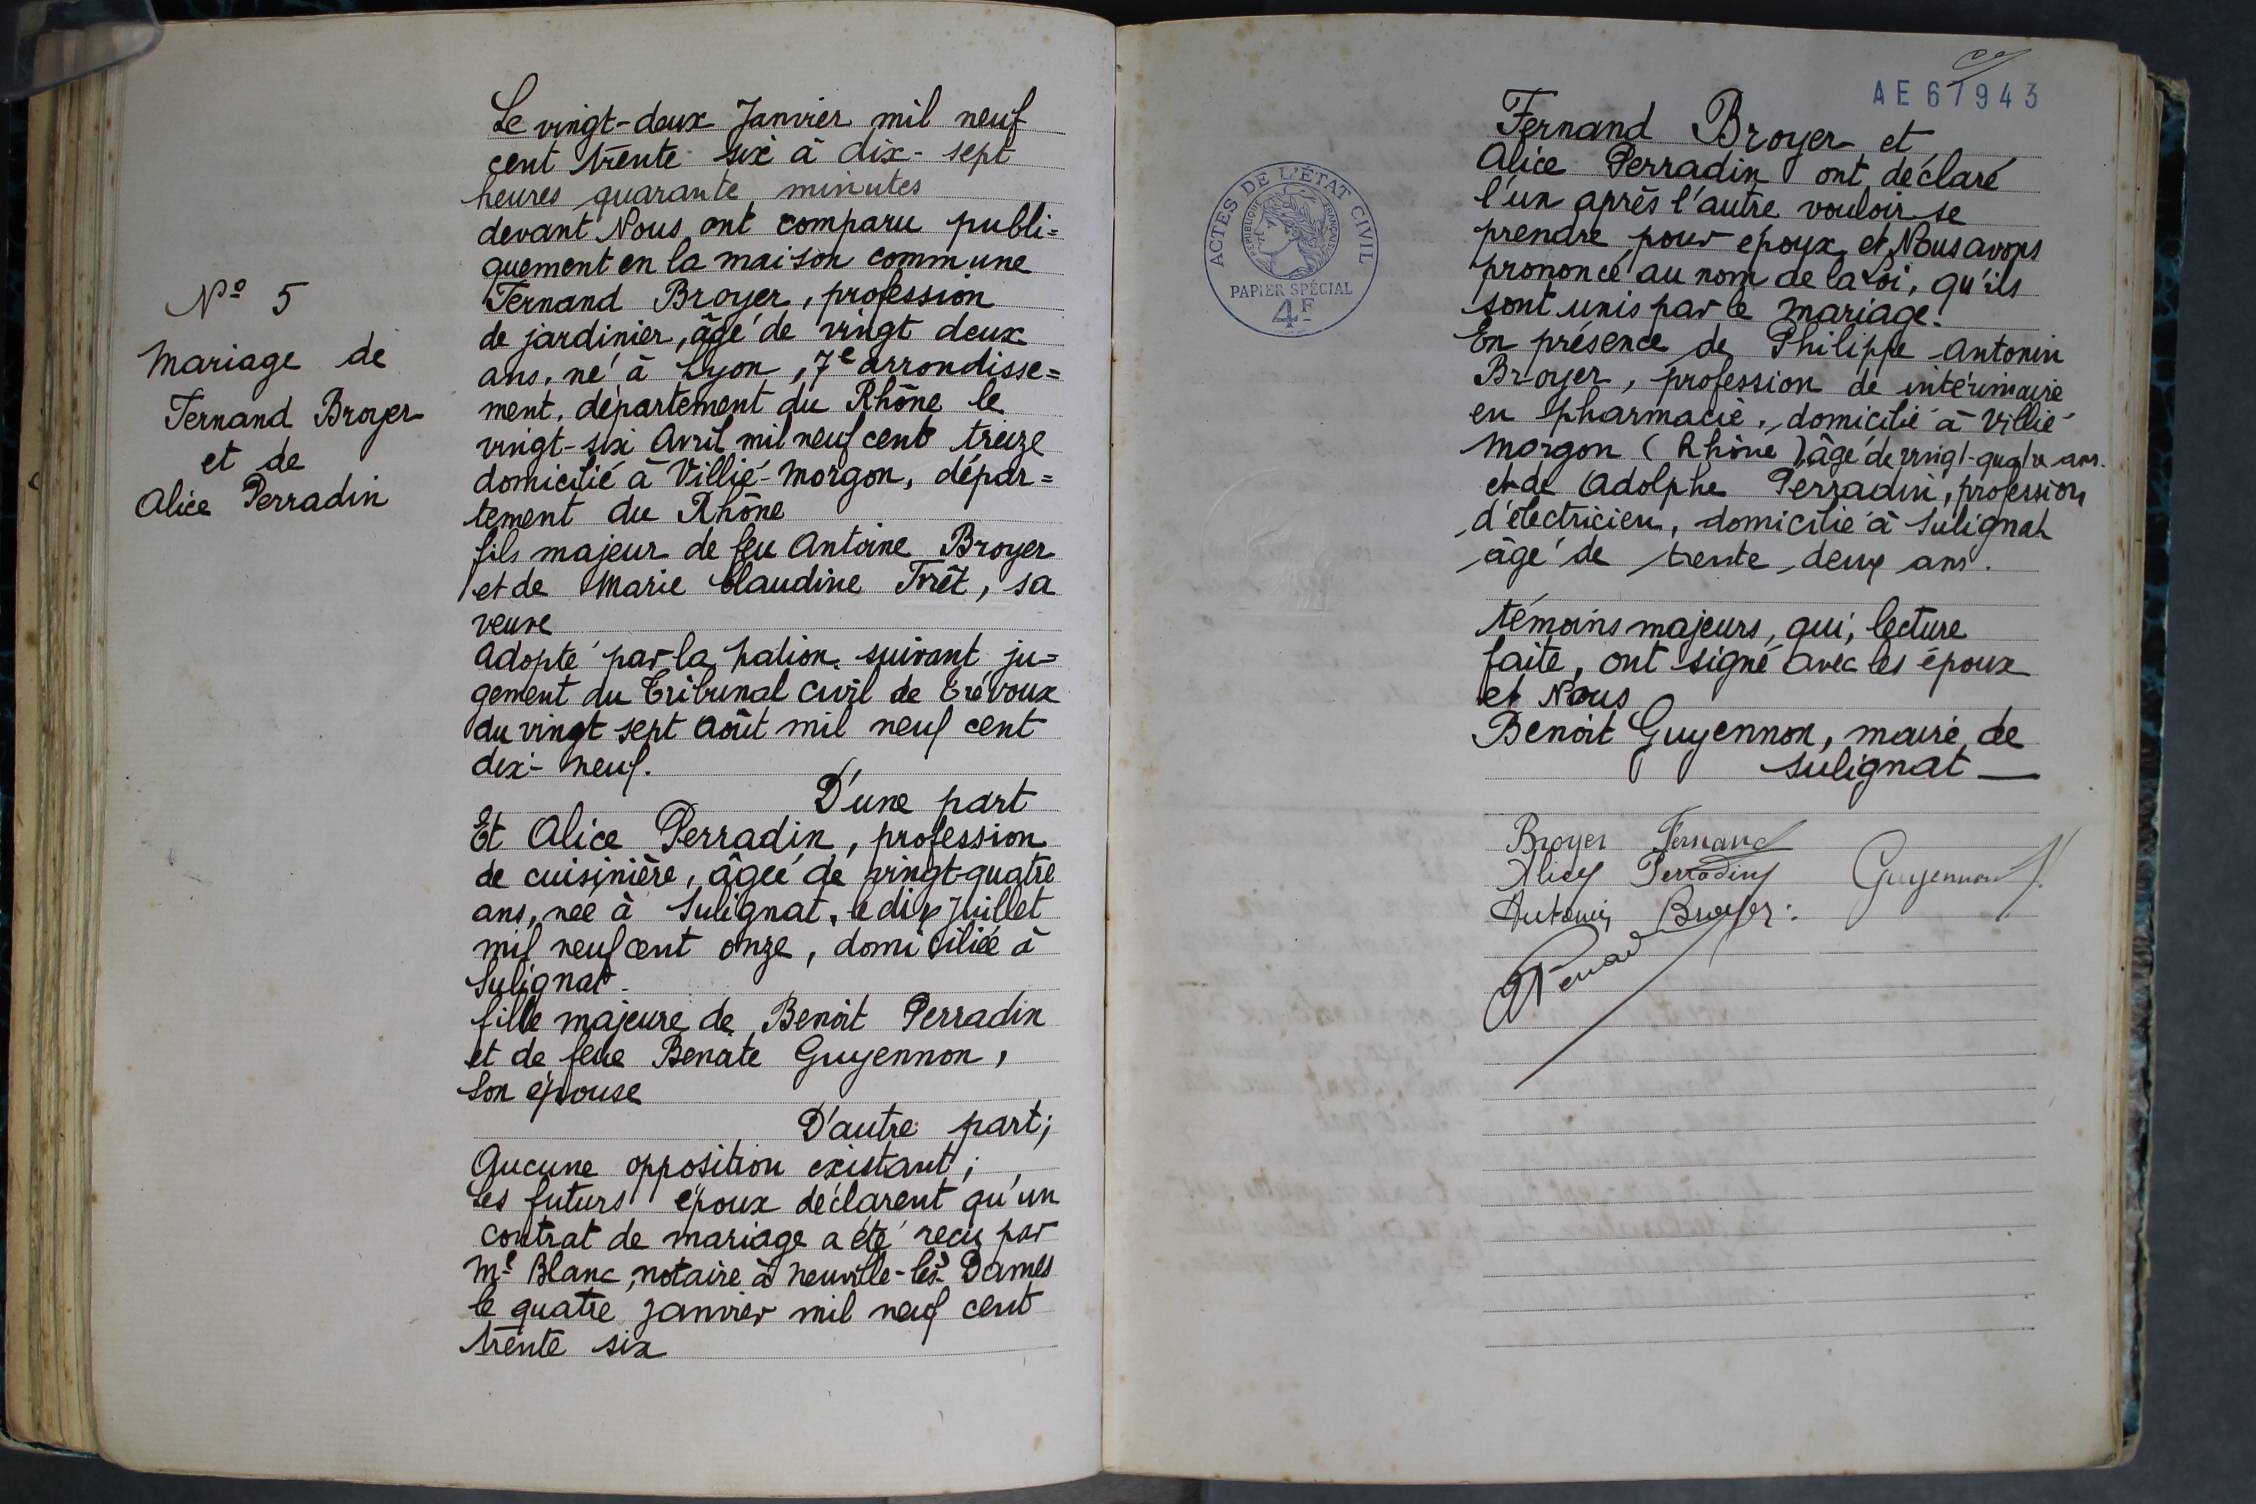 Nº 5
Mariage de
Fernand Broyer
et de
Alice Perradin
Le vingt-deux Janvier mil neuf
cent trente six à dix-sept
heures quarante minutes
devant Nous ont comparu publi=
quement en la maison commune
Fernand Broyer, profession
de jardinier, âgé de vingt deux
ans, né à Lyon, 7e arrondisse=
ment, département du Rhône le
vingt-six Avril mil neuf cent treize
domicilié à Villié-Morgon, dépar=
tement du Rhône
fils majeur de feu Antoine Broyer
et de Marie Claudine sa
veuve
Adopté par la nation suivant ju=
gement du Tribunal Civil de Trévoux
du vingt sept Août mil neuf cent
dix-neuf.
D'une part
Et Alice Perradin, profession
de cuisinière, âgée de vingt-quatre
ans, née à Sulignat, le dix Juillet
mil neuf cent onze, domiciliée à
Sulignat.
fille majeure de Benoît Perradin
et de feue Benoîte Guyennon,
son épouse
D'autre part;
Aucune opposition existant;
Les futurs époux déclarent qu'un
contrat de mariage a été reçu par
Me Blanc, notaire à Neuville-les-Dames
le quatre janvier mil neuf cent
trente six
AE 67943
ACTES DE L'ÉTAT CIVIL
RÉPUBLIQUE FRANÇAISE
PAPIER SPÉCIAL
4F
Fernand Broyer et
Alice Perradin ont déclaré
l'un après l'autre vouloir se
prendre pour époux et Nous avons
prononcé au nom de la Loi, qu'ils
sont unis par le mariage.
En présence de Philippe Antonin
Broyer, profession de intérimaire
en pharmacie, domicilié à Villié-
Morgon (Rhône) âgé de vingt-quatre ans.
et de Adolphe Perradin, profession
d'électricien, domicilié à Sulignat
âgé de trente deux ans.
témoins majeurs, qui, lecture
faite, ont signé avec les époux
et Nous
Benoît Guyennon, maire de
Sulignat
Broyer Fernand
Alice Perradin Guyennon
Antonin Broyer